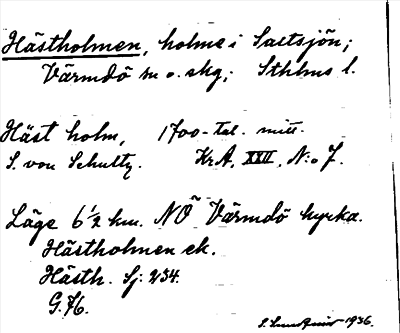 Hästholmen, holme i Saltsjön;
Värmdö sn o. skg; Sthlms l.
Häst holm, 1700-tal. mitt.
S. von Schultz. KrA, XXII, N:o 7.
Läge 6 1/2 km. NÖ Värmdö kyrka.
Hästholmen ek.
Hästh. Sj: 234.
G. 76.
1936.